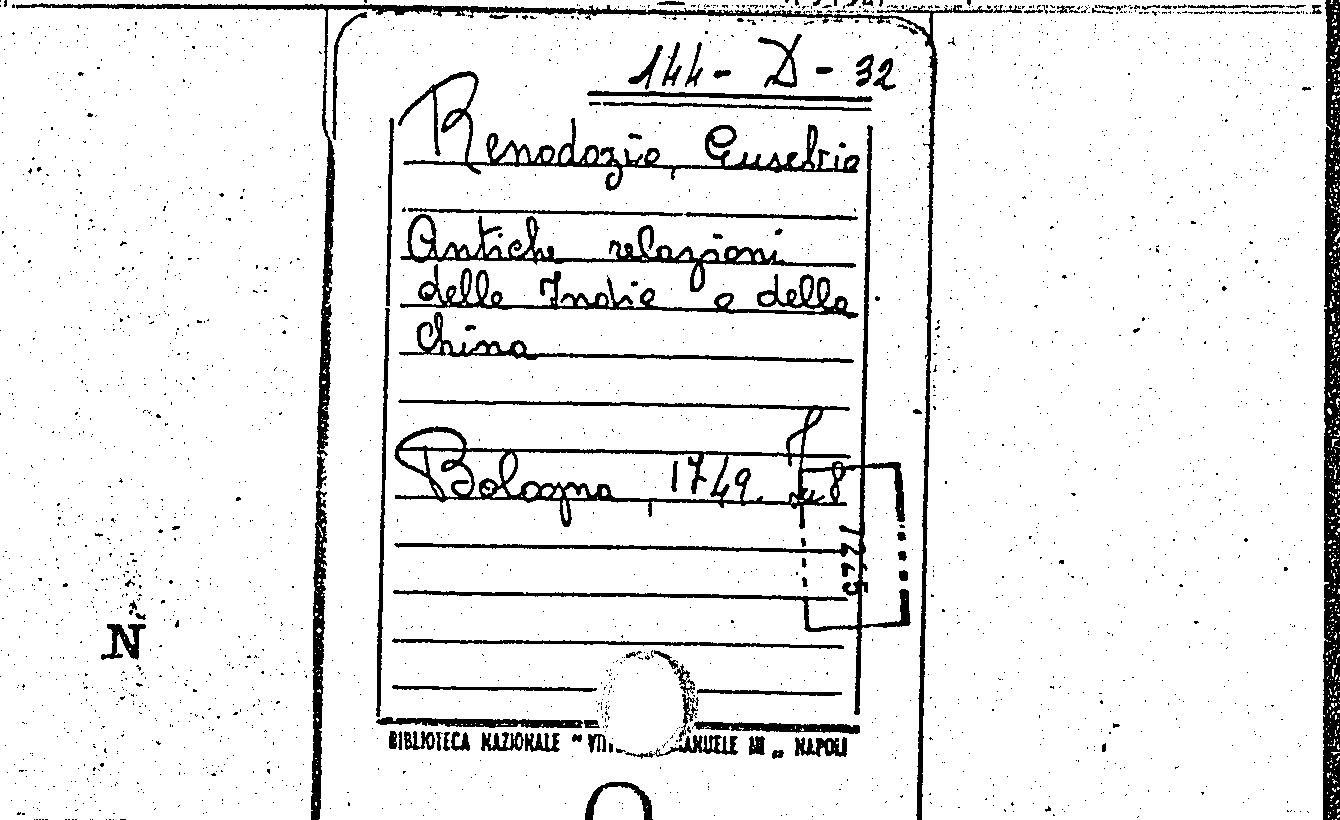 144 - D - 32
Renodozio, Eusebio
Antiche relazioni
delle Indie e della
China
Bologna, 1749. In 8
7225
BIBLIOTECA NAZIONALE " VITT ANUELE III " NAPOLI
N